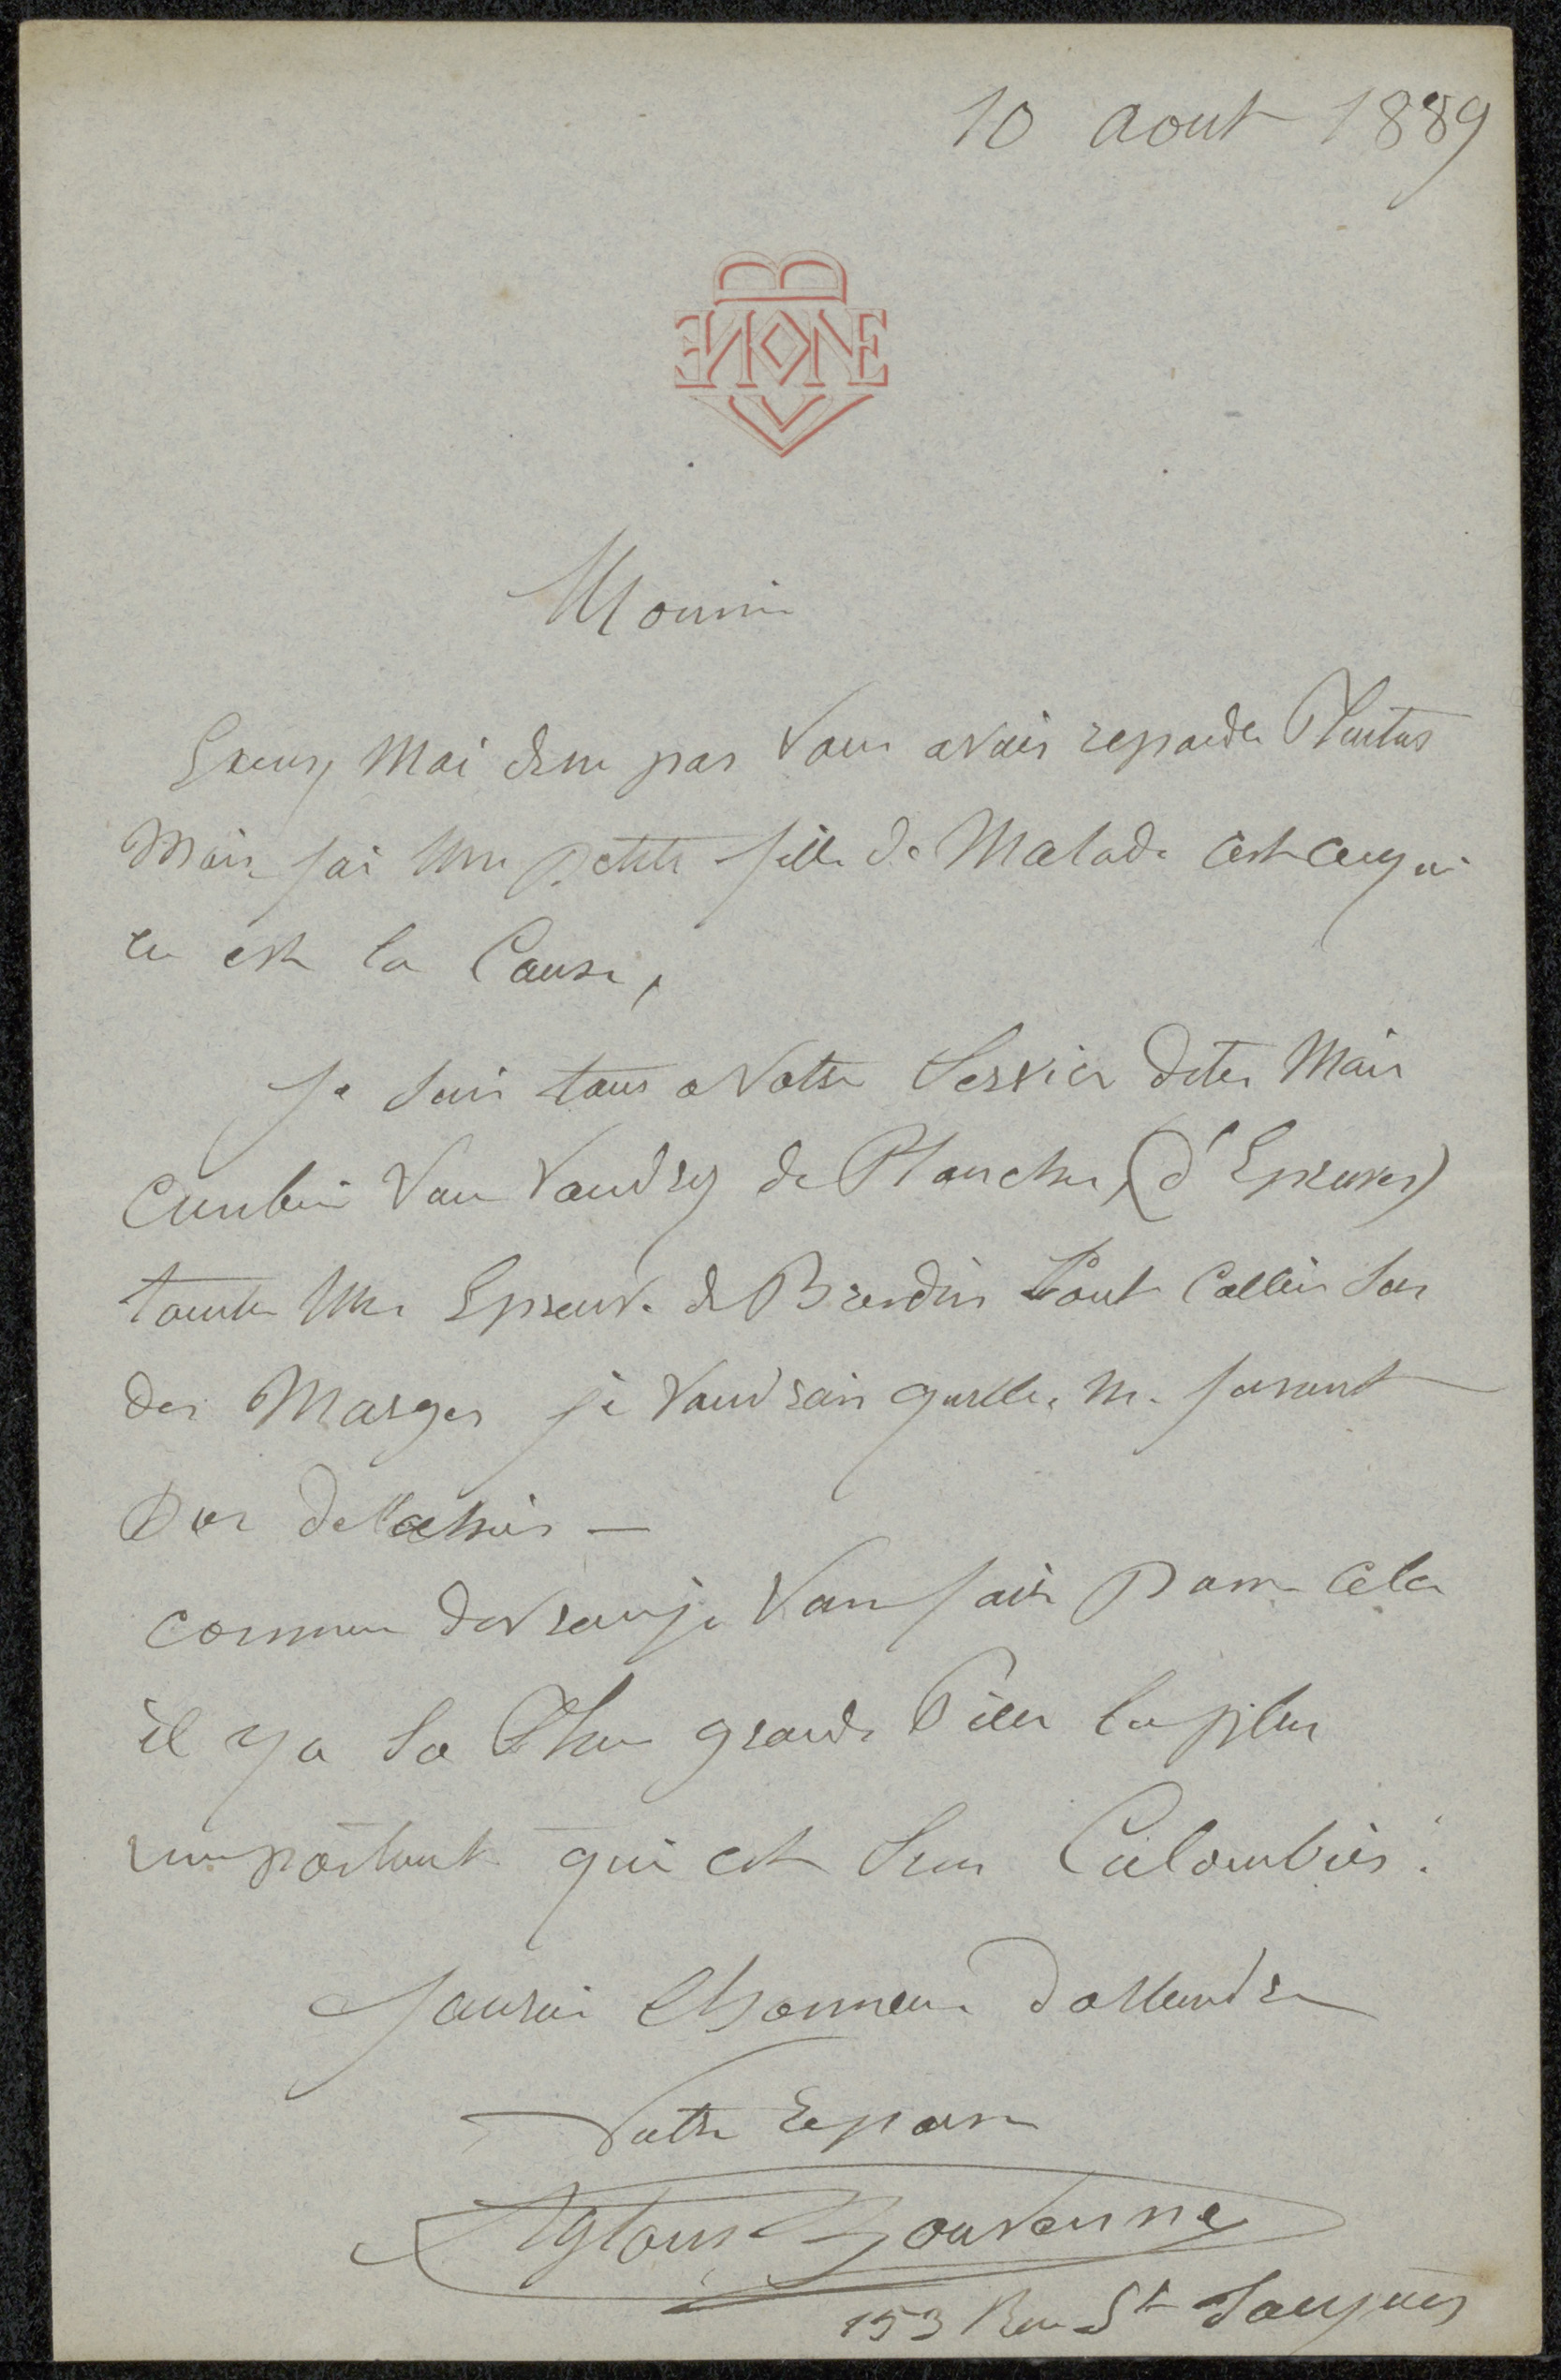 10 aout 1889
Monsieur
Excusez Moi de ne pas Vous avoir repondu Plutus
Mais j'ai Une petite fille de Malade c'est ce qui
en est la Cause,
Je suis tous a Votre Service dites Mois
Combien Vous Voudrez de Planches (d'Epreuves)
toutes Mes Epreuves de Bresdin sont Collées sur
des Marges je voudrais quelles ne fussent
pas detachées —
comment devrai je Vous faire parvenir cela
il y a la Plus grande Pièce la plus
importante qui est sur Colombier.
J'aurai l'honneur d'attendre
Votre Reponse
Aglaus Bouvenne
153 Rue St Jacques